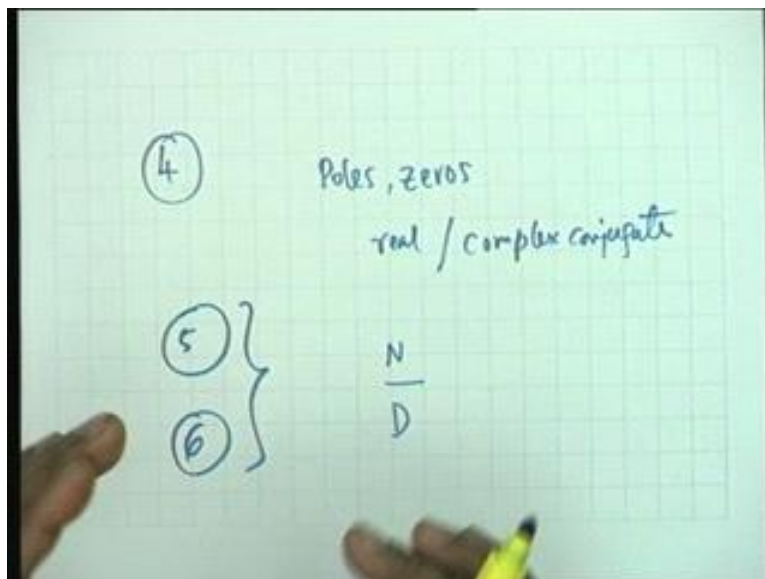 4 Poles, zeros
real / complex conjugate
5
6
N
D